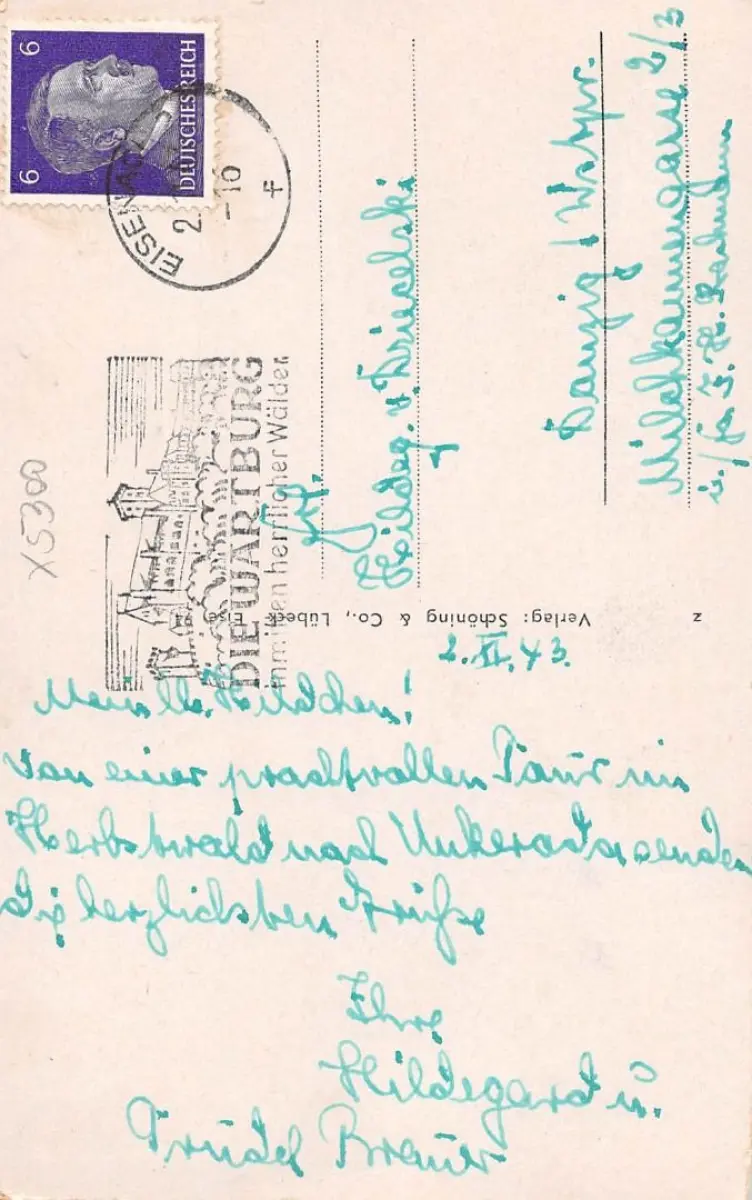 6 6
DEUTSCHES REICH
EISENACH
2
-16
f
DIE WARTBURG
inmitten herrlicher Wälder
X5300
Hildeg. v. Dziecelski
Danzig / Wstpr.
Milchkannengasse 2/3
Verlag: Schöning & Co., Lübeck
z
2. XI. 43.
Mein lb. Hildchen!
Von einer prachtvollen Tour im
Herbstwald nach Unkeroda senden
die herzlichsten Grüße
Ihre
Hildegard u.
Trudel Brauer